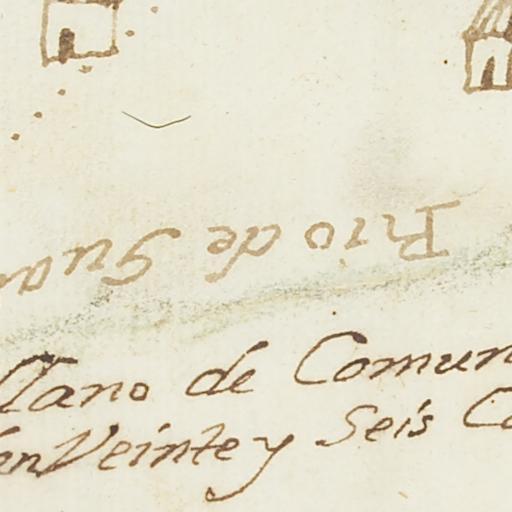 Rio de Gua
llano de Comun
Veinte y Seis Ca